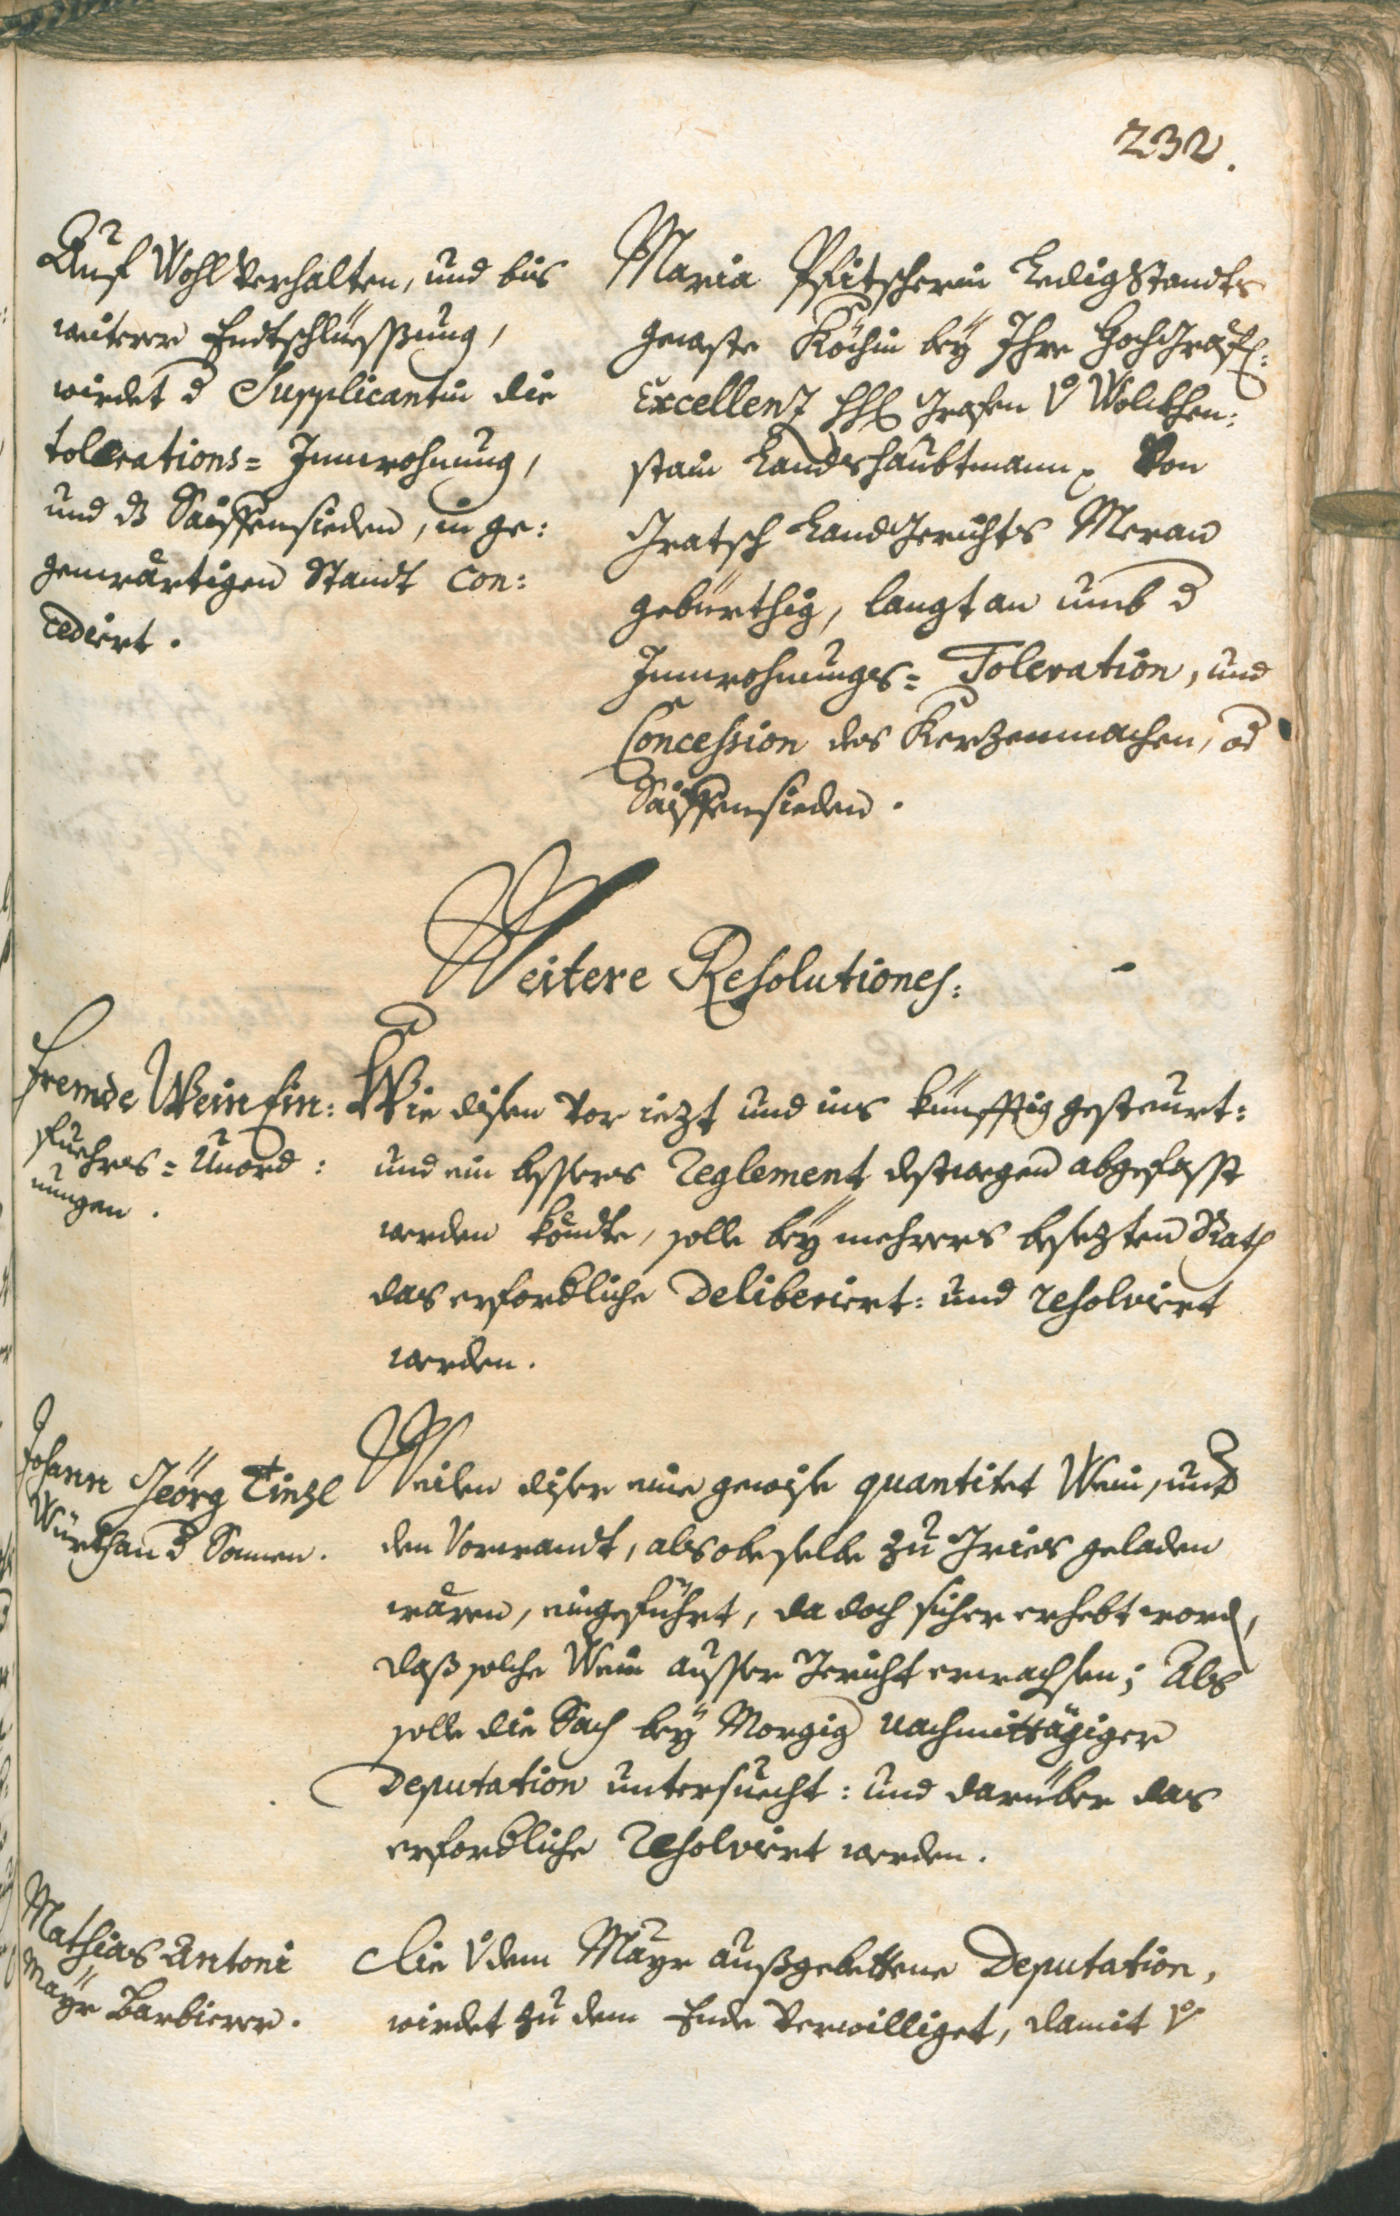 232.
Auf Wohlverhalten, und bis
weiterer Endtschlüessßung,
wirdet d Supplicantin die
tollerations= Innwohnung,
und dz Saiffensieden, in ge:
genwärtigen Standt con:
cediert.
Maria Pfitscherin Ledig Standts
geweste Köchin bey Ihro Hochgräfl:
Excellenz Grafen v Wolckhen:
stain Landtshaubtmann Von
Gratsch Landgerichts Meran
gebürthig, langt an umb d
Innwohnungs= Toleration, und
Concession des Kerzenmachen, od
Saiffensieden.
Weitere Resolutiones:
Fremde Wein Ein:
fuehrs= Unord:
nungen.
Wie disen vor iezt und ins künfftig gesteurt:
und ein bessers Reglement destwegen abgefasst
werden köndte, solle bey mehrers besezten Rath
das erfordliche deliberiert: und resolviert
werden.
Johann Geörg Tinzl
Würth an d Sonnen.
Weilen diser eine gewise quantitet Wein, unter
den Vorwandt, als obe selbe zu Gries geladen
wären, eingeführt, da doch sicher erhebt word,
daß solche Wein ausser Gericht erwachsen; Als
solle die Sach bey Morgig nachmittägiger
Deputation untersuecht: und darüber das
erfordliche resolviert werden.
Mathias Antoni
Mayr Barbierer.
Die v dem Mayr außgebettene Deputation,
wirdet zu dem Ende verwilliget, damit v